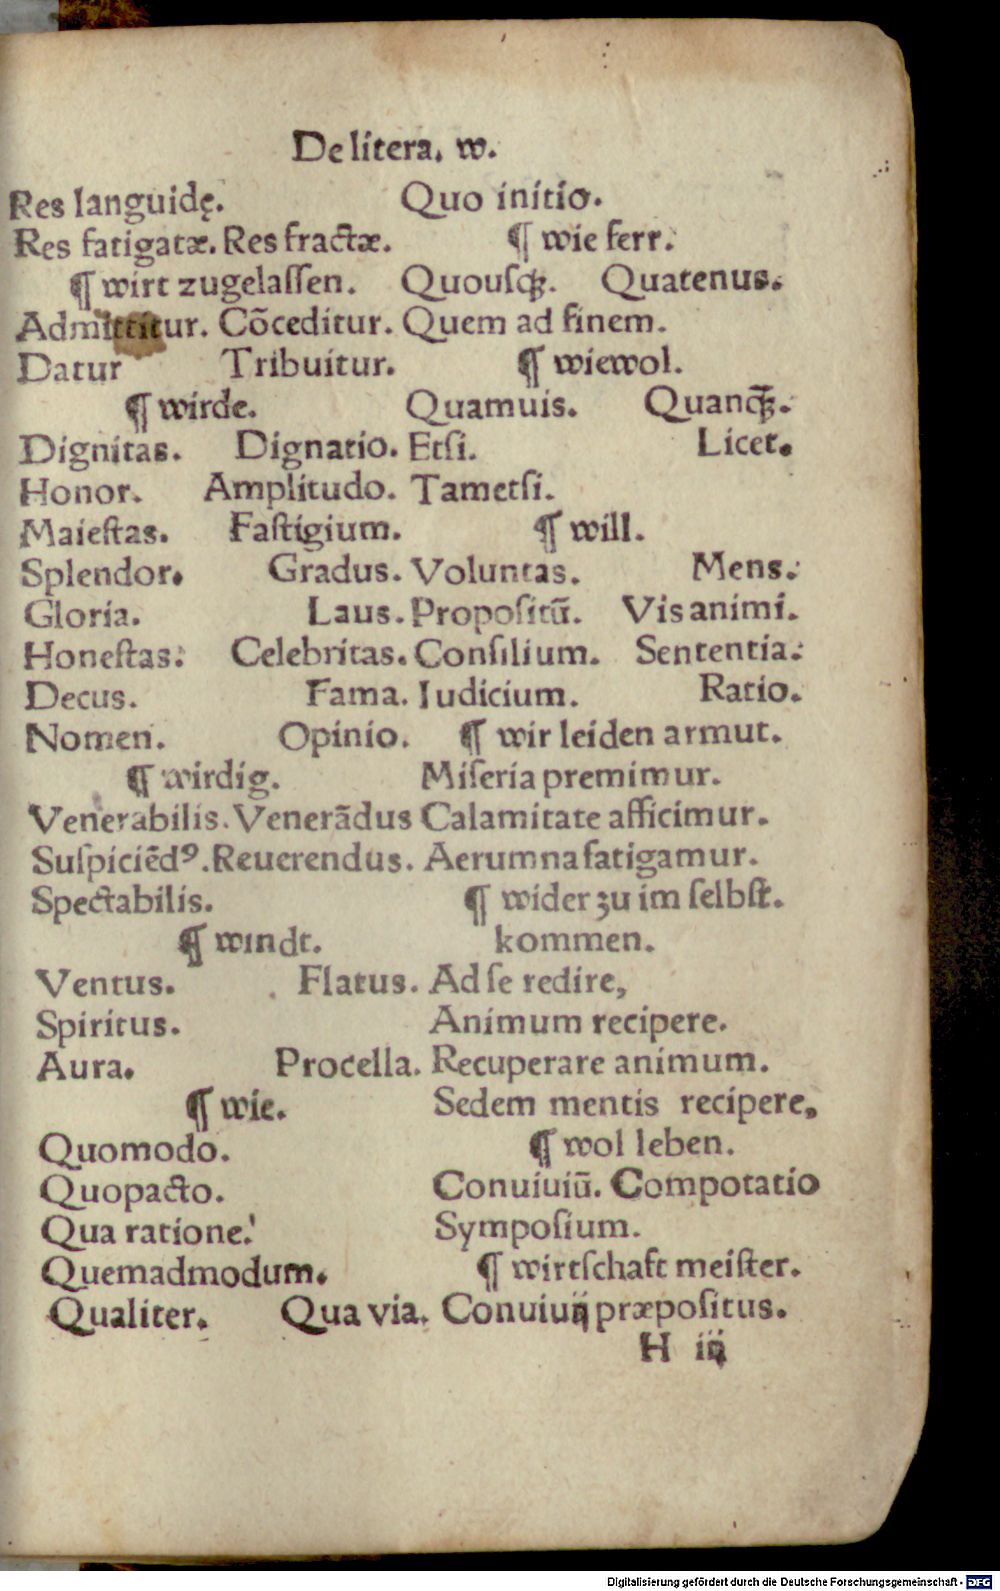 De litera. w.
Res languidę.
Res fatigatæ. Res fractæ.
¶ wirt zugelassen.
Admittitur. Cõceditur.
Datur Tribuitur.
¶ wirde.
Dignitas. Dignatio.
Honor. Amplitudo.
Maiestas. Fastigium.
Splendor. Gradus.
Gloria. Laus.
Honestas. Celebritas.
Decus. Fama.
Nomen. Opinio.
¶ wirdig.
Venerabilis. Venerãdus
Suspiciẽdꝰ. Reuerendus.
Spectabilis.
¶ windt.
Ventus. Flatus.
Spiritus.
Aura. Procella.
¶ wie.
Quomodo.
Quopacto.
Qua ratione.
Quemadmodum.
Qualiter. Qua via.
Quo initio.
¶ wie ferr.
Quousqꝫ. Quatenus.
Quem ad finem.
¶ wiewol.
Quamuis. Quanqꝫ.
Etsi. Licet.
Tametsi.
¶ will.
Voluntas. Mens.
Propositũ. Vis animi.
Consilium. Sententia.
Iudicium. Ratio.
¶ wir leiden armut.
Miseria premimur.
Calamitate afficimur.
Aerumna fatigamur.
¶ wider zu im selbst.
kommen.
Ad se redire,
Animum recipere.
Recuperare animum.
Sedem mentis recipere,
¶ wol leben.
Conuiuiũ. Compotatio
Symposium.
¶ wirtschaft meister.
Conuiuij præpositus.
H iij
Digitalisierung gefördert durch die Deutsche Forschungsgemeinschaft - DFG